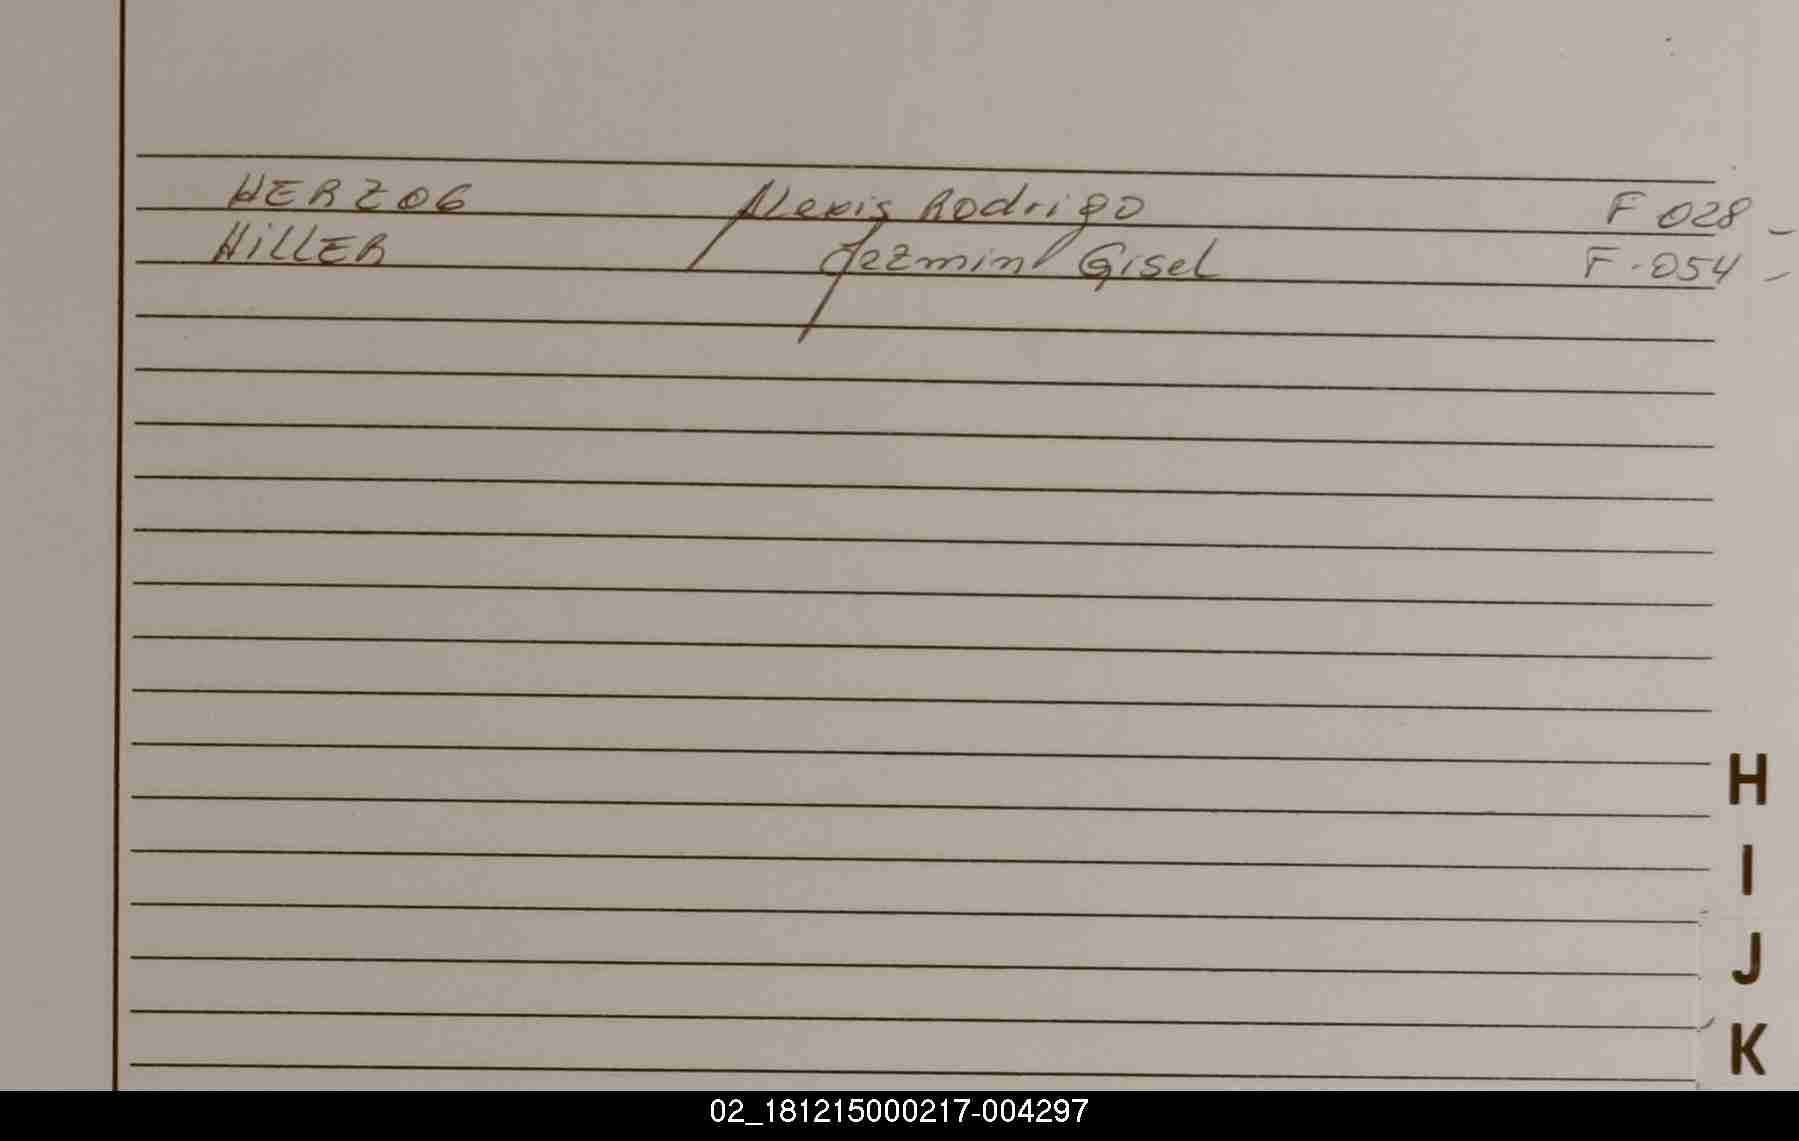 HERZOG Alexis Rodrigo F 028 -
HiLLER Jezmin Gisel F-054 -
H
I
J
K
02_181215000217-004297